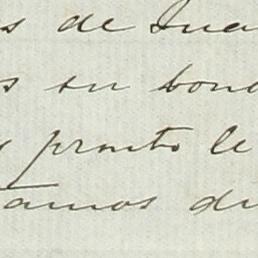 s de Jua
s su bond
y pronto le
amos di